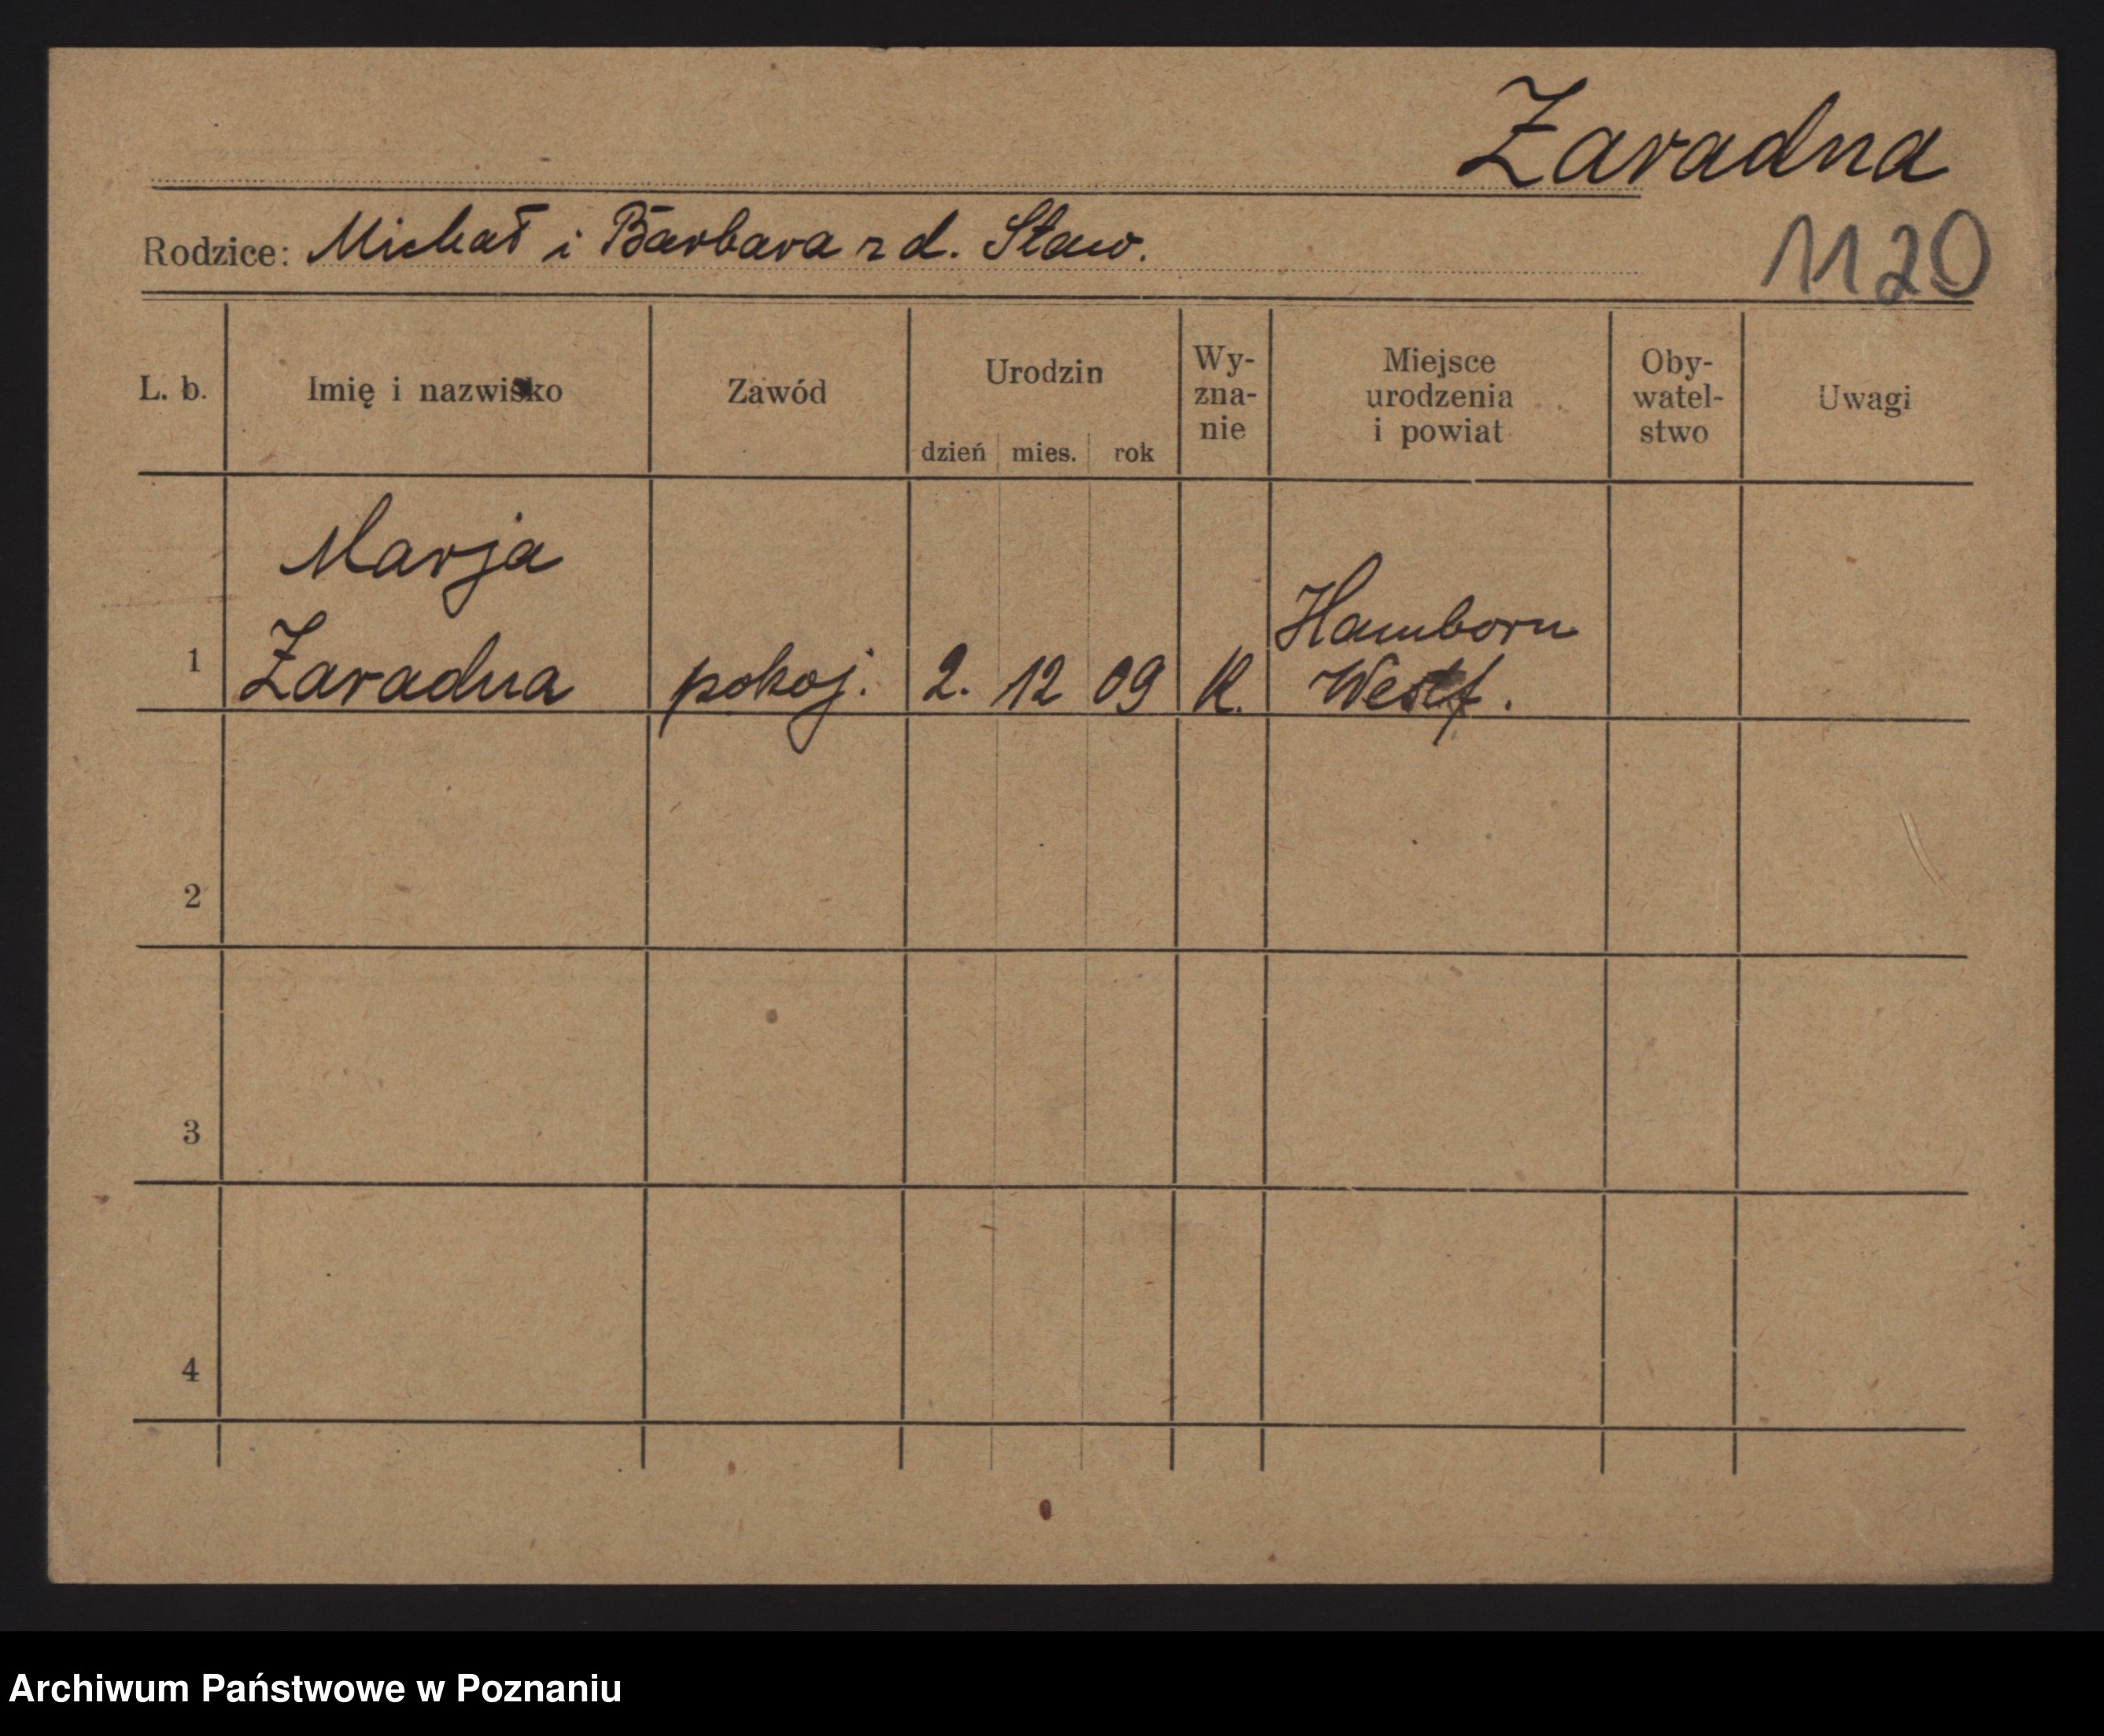 Zaradna
Rodzice: Michał i Barbara z d. Staw.
1120
L. b. Imię i nazwisko Zawód Urodzin dzień mies. rok Wy-zna-nie Miejsce urodzenia i powiat Oby-watel-stwo Uwagi
Marja
Hamborn
1 Zaradna pokoj. 2. 12 09 K. Westf.
2
3
4
Archiwum Państwowe w Poznaniu